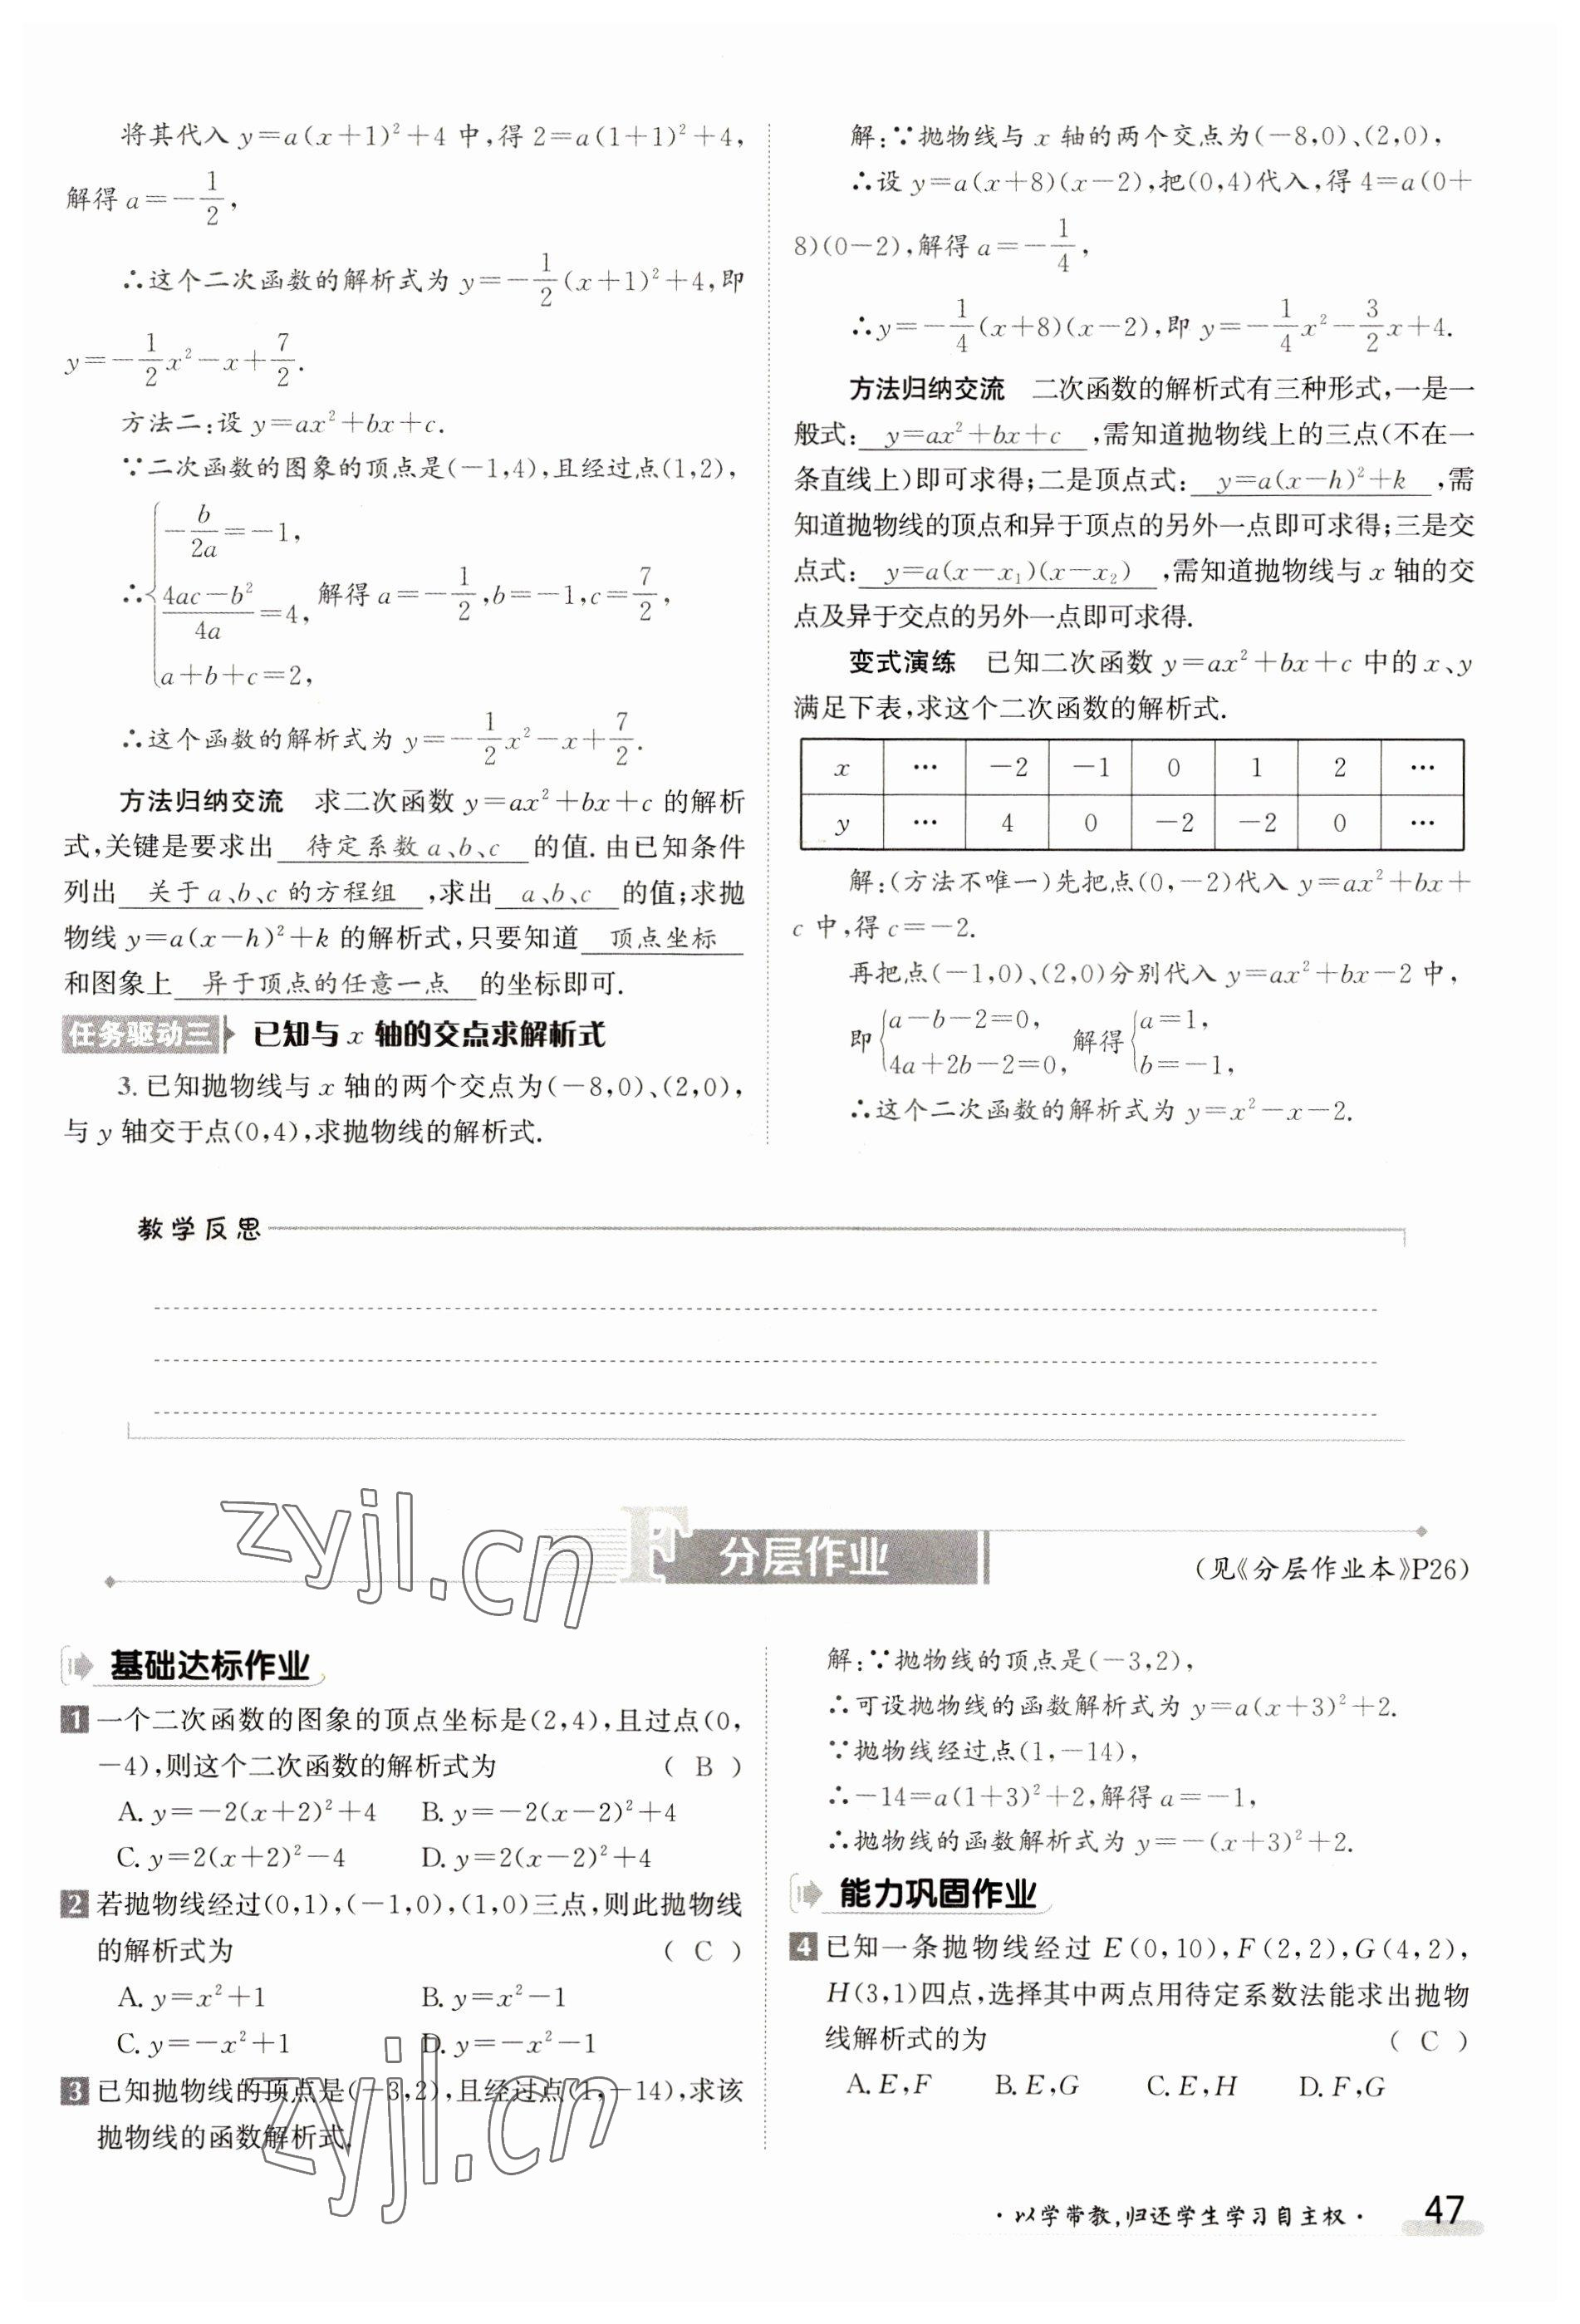 将其代入 y=a(x+1)²+4 中,得 2=a(1+1)²+4,
解得 a=-1/2,
∴这个二次函数的解析式为 y=-1/2(x+1)²+4,即
y=-1/2x²-x+7/2.
方法二:设 y=ax²+bx+c.
∵二次函数的图象的顶点是(-1,4),且经过点(1,2),
-b/2a=-1,
∴{(4ac-b²)/4a=4, 解得 a=-1/2,b=-1,c=7/2,
a+b+c=2,
∴这个函数的解析式为 y=-1/2x²-x+7/2.
方法归纳交流 求二次函数 y=ax²+bx+c 的解析
式,关键是要求出 待定系数 a、b、c 的值. 由已知条件
列出 关于 a、b、c 的方程组 ,求出 a、b、c 的值;求抛
物线 y=a(x-h)²+k 的解析式,只要知道 顶点坐标
和图象上 异于顶点的任意一点 的坐标即可.
任务驱动三 已知与 x 轴的交点求解析式
3. 已知抛物线与 x 轴的两个交点为(-8,0)、(2,0),
与 y 轴交于点(0,4),求抛物线的解析式.
解:∵抛物线与 x 轴的两个交点为(-8,0)、(2,0),
∴设 y=a(x+8)(x-2),把(0,4)代入,得 4=a(0+
8)(0-2),解得 a=-1/4,
∴y=-1/4(x+8)(x-2),即 y=-1/4x²-3/2x+4.
方法归纳交流 二次函数的解析式有三种形式,一是一
般式: y=ax²+bx+c ,需知道抛物线上的三点(不在一
条直线上)即可求得;二是顶点式: y=a(x-h)²+k ,需
知道抛物线的顶点和异于顶点的另外一点即可求得;三是交
点式: y=a(x-x₁)(x-x₂) ,需知道抛物线与 x 轴的交
点及异于交点的另外一点即可求得.
变式演练 已知二次函数 y=ax²+bx+c 中的 x、y
满足下表,求这个二次函数的解析式.
x … -2 -1 0 1 2 …
y … 4 0 -2 -2 0 …
解:(方法不唯一)先把点(0,-2)代入 y=ax²+bx+
c 中,得 c=-2.
再把点(-1,0)、(2,0)分别代入 y=ax²+bx-2 中,
即{a-b-2=0, 解得{a=1,
4a+2b-2=0, b=-1,
∴这个二次函数的解析式为 y=x²-x-2.
教学反思
zyjl.cn
F 分层作业
(见《分层作业本》P26)
基础达标作业
1 一个二次函数的图象的顶点坐标是(2,4),且过点(0,
-4),则这个二次函数的解析式为 ( B )
A. y=-2(x+2)²+4 B. y=-2(x-2)²+4
C. y=2(x+2)²-4 D. y=2(x-2)²+4
2 若抛物线经过(0,1),(-1,0),(1,0)三点,则此抛物线
的解析式为 ( C )
A. y=x²+1 B. y=x²-1
C. y=-x²+1 D. y=-x²-1
3 已知抛物线的顶点是(-3,2),且经过点(1,-14),求该
抛物线的函数解析式.
zyjl.cn
解:∵抛物线的顶点是(-3,2),
∴可设抛物线的函数解析式为 y=a(x+3)²+2.
∵抛物线经过点(1,-14),
∴-14=a(1+3)²+2,解得 a=-1,
∴抛物线的函数解析式为 y=-(x+3)²+2.
能力巩固作业
4 已知一条抛物线经过 E(0,10),F(2,2),G(4,2),
H(3,1)四点,选择其中两点用待定系数法能求出抛物
线解析式的为 ( C )
A. E,F B. E,G C. E,H D. F,G
·以学带教,归还学生学习自主权· 47